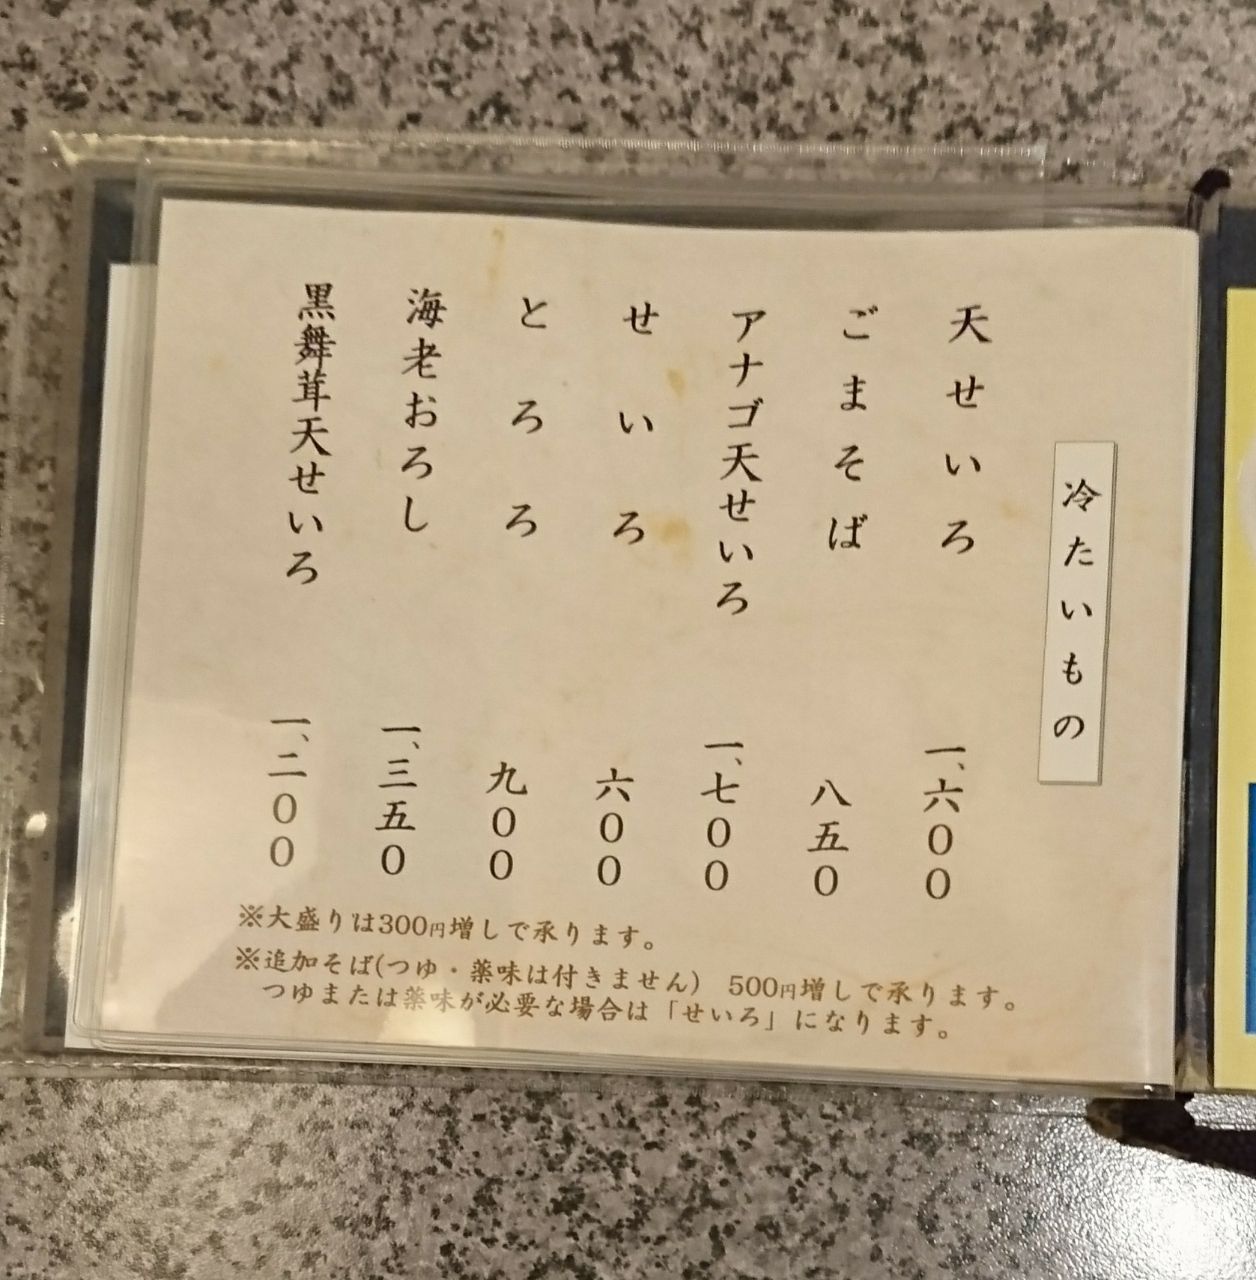 冷たいもの
天せいろ 一、六００
ごまそば 八五０
アナゴ天せいろ 一、七００
せいろ 六００
とろろ 九００
海老おろし 一、三五０
黒舞茸天せいろ 一、二００
※大盛りは300円増しで承ります。
※追加そば(つゆ・薬味は付きません)　500円増しで承ります。
つゆまたは薬味が必要な場合は「せいろ」になります。